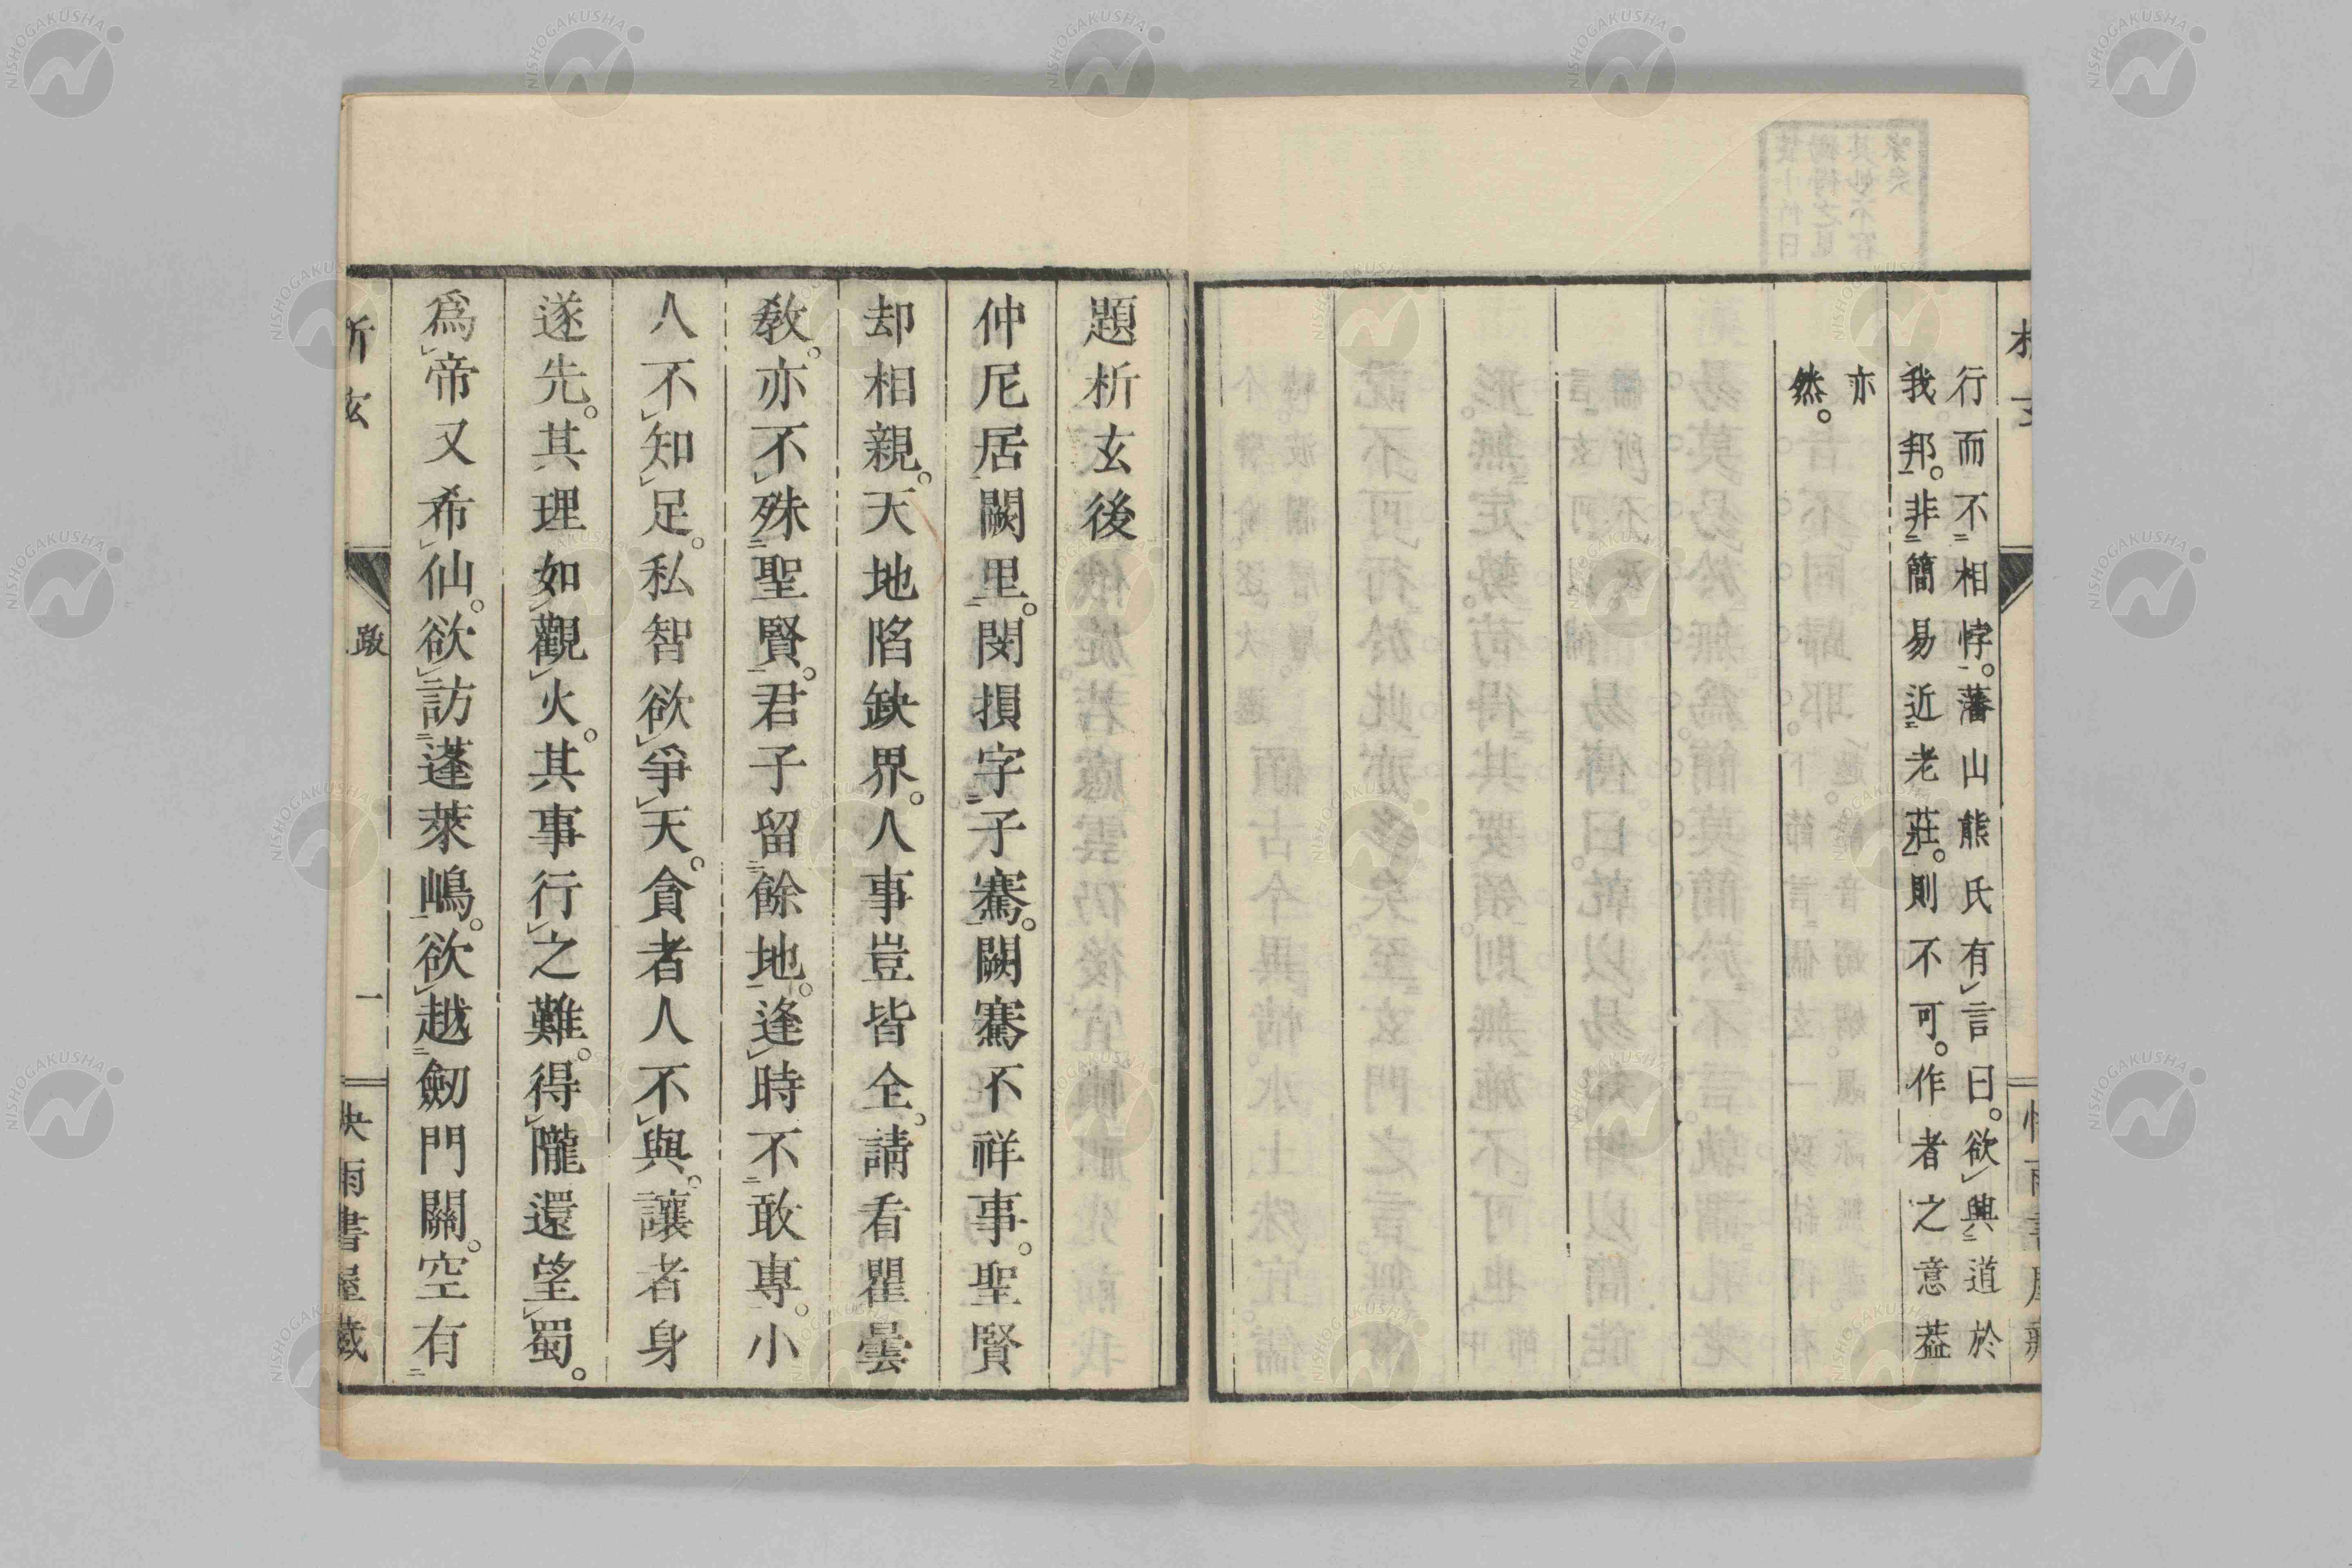 行而不相悖。藩山熊氏有言曰。欲與道於
我邦。非簡易近老莊。則不可。作者之意蓋
亦
然。
題析玄後
仲尼居闕里。閔損字子騫。闕騫不祥事。聖賢
却相親。天地陷缺界。人事豈皆全。請看瞿曇
教。亦不殊聖賢。君子留餘地。逢時不敢專。小
人不知足。私智欲爭天。貪者人不與。讓者身
遂先。其理如觀火。其事行之難。得隴還望蜀。
爲帝又希仙。欲訪蓬萊嶋。欲越劒門關。空有
析玄
跋
一
快雨書屋藏
NISHOGAKUSHA